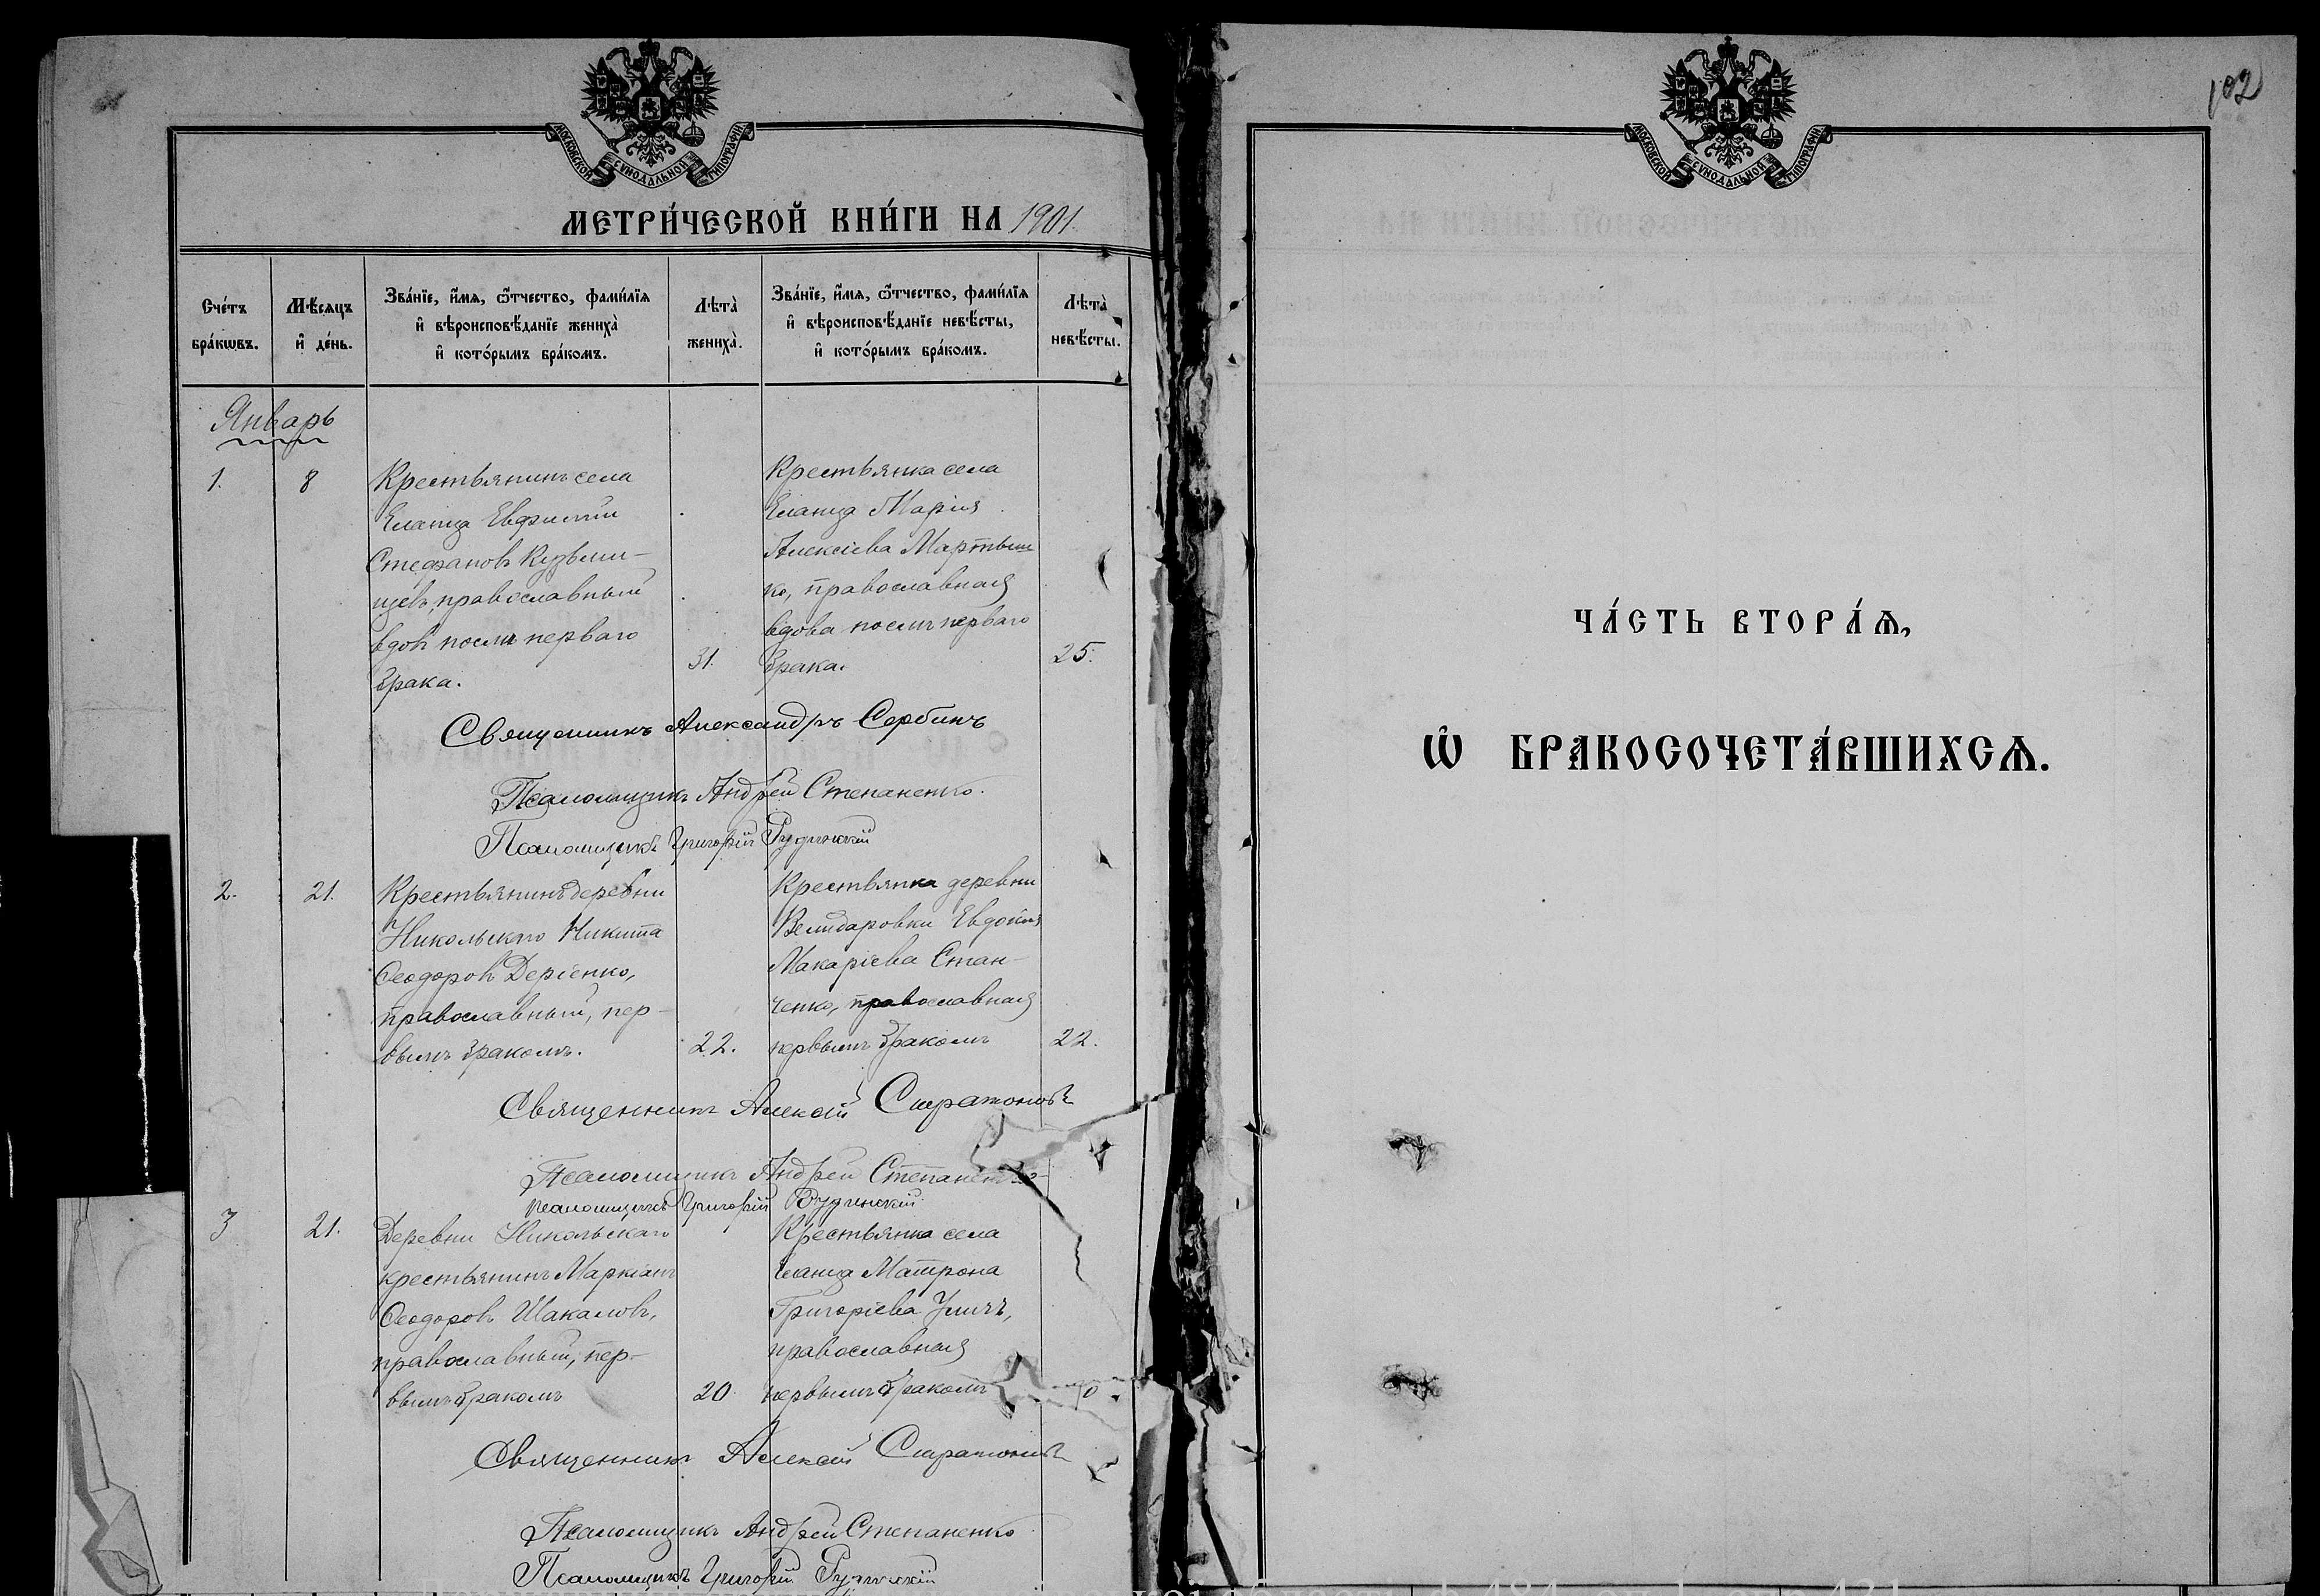 МОСКОВСКОЙ СѴНОДАЛЬНОЙ ТИПОГРАФІИ
МЕТРИ́ЧЕСКОЙ КНИ́ГИ НА 1901.
Сче́тъ бра́кѡвъ.
Мѣ́сяцъ и҆ де́нь.
Зва́нїе, и҆́мѧ, ѻ҆́тчество, фами́лїѧ
и҆ вѣроисповѣ́данїе жениха̀
и҆ кото́рымъ бра́комъ.
Лѣта̀ жениха̀.
Зва́нїе, и҆́мѧ, ѻ҆́тчество, фами́лїѧ
и҆ вѣроисповѣ́данїе невѣ́сты,
и҆ кото́рымъ бра́комъ.
Лѣта̀ невѣ́сты.
Январь
1. 8
Крестьянинъ села
Еланца Евфимій
Стефановъ Кузьмин-
цевъ, православный
вдовъ послѣ перваго
брака.
31.
Крестьянка села
Еланца Марія
Алексіева Мартын
ко, православная
вдова послѣ перваго
брака.
25.
Священникъ Александръ Сербинъ
Псаломщикъ Андрей Степаненко.
Псаломщикъ Григорій Рудинскій
2. 21.
Крестьянинъ деревни
Никольскаго Никита
Ѳеодоровъ Деріенко,
православный, пер-
вымъ бракомъ.
22.
Крестьянка деревни
Велидаровки Евдокія
Макаріева Стан-
ченко, православная
первымъ бракомъ
22.
Священникъ Алексѣй
Псаломщикъ Андрей Степаненко
Псаломщикъ Григорій Рудинскій
3 21.
Деревни Никольскаго
крестьянинъ Маркіанъ
Ѳеодоровъ Шакаловъ,
православный, пер-
вымъ бракомъ
20
Крестьянка села
Еланца Матрона
Григоріева
православная
первымъ бракомъ
Священникъ Алексѣй
Псаломщикъ Андрей Степаненко
Псаломщикъ Григорій Рудинскій
102
МОСКОВСКОЙ СѴНОДАЛЬНОЙ ТИПОГРАФІИ
ЧА́СТЬ ВТОРА́Ѧ,
Ѡ҆ БРАКОСОЧЕТА́ВШИХСѦ.